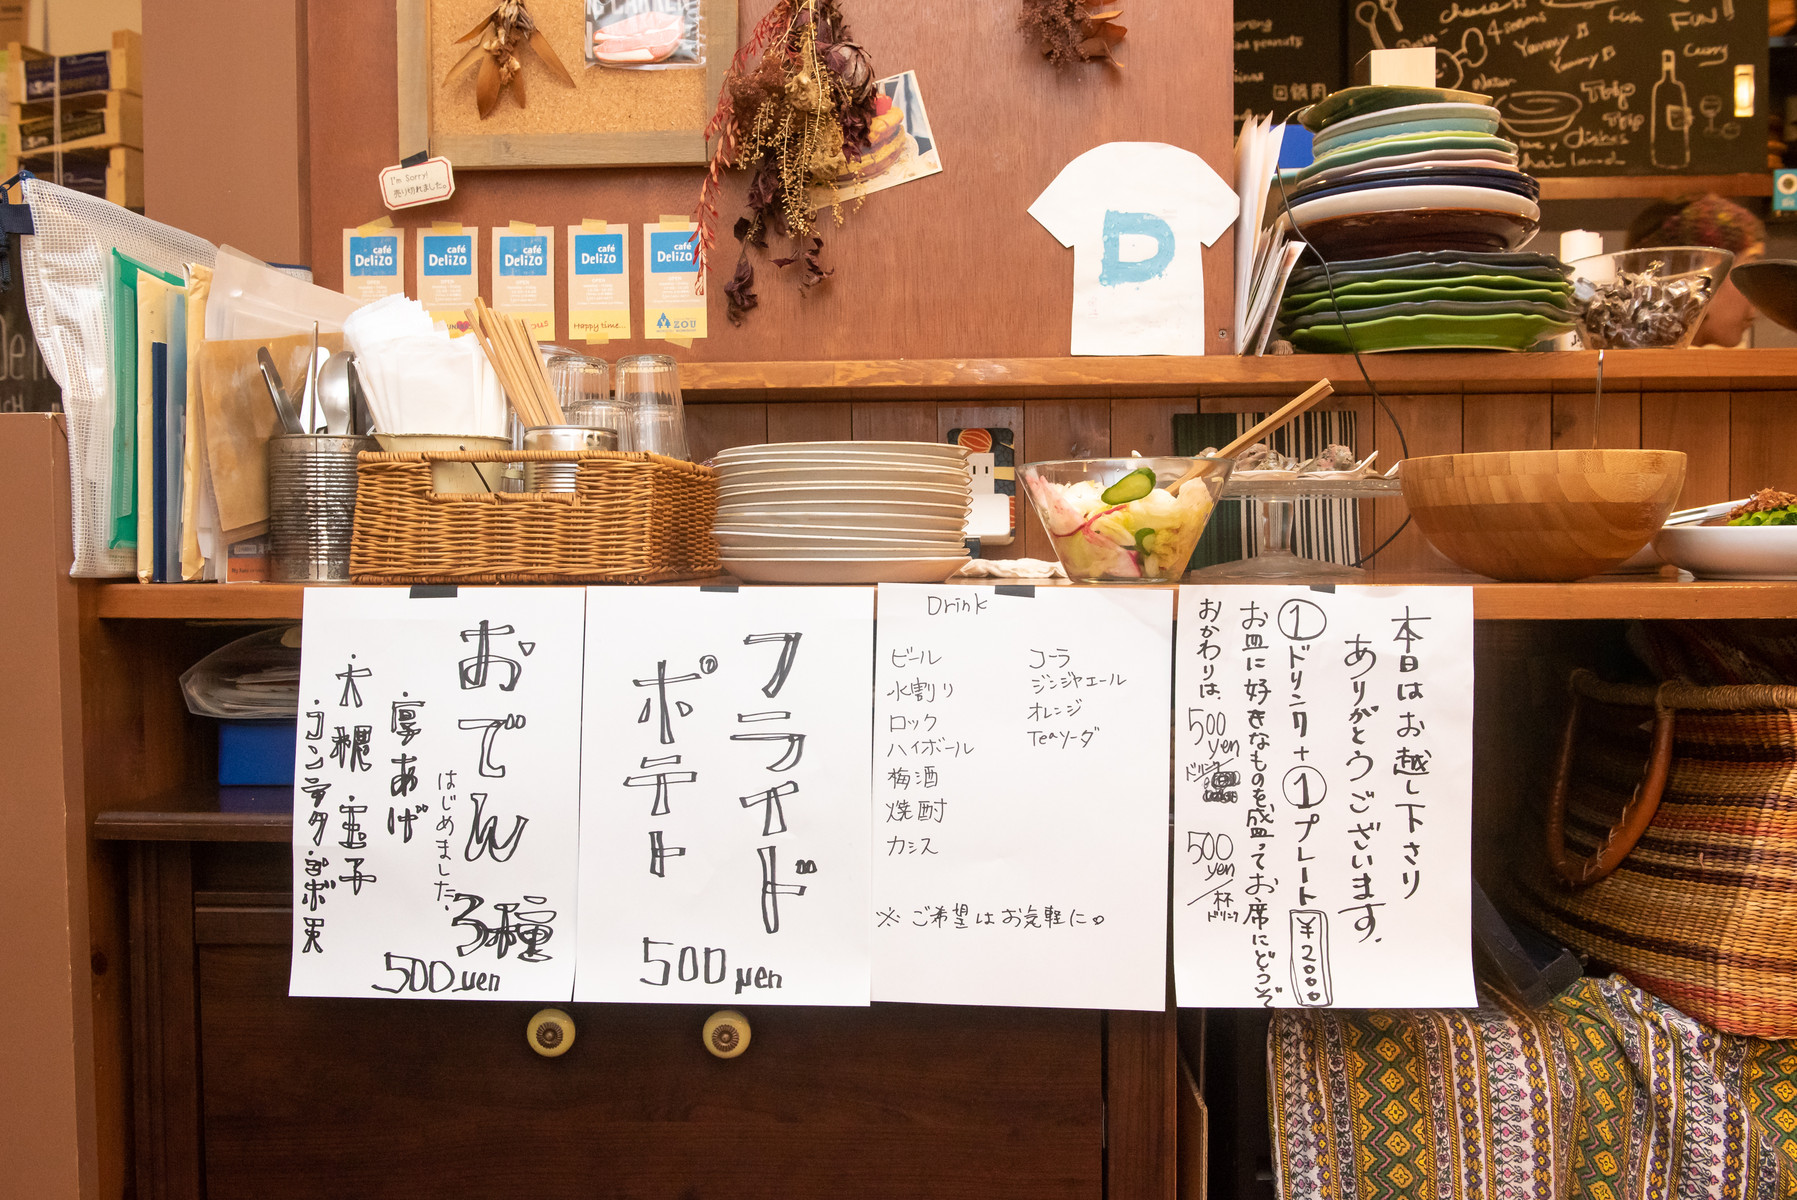 cheese
4 seasons
Fish
FUN!
Yummy
Yummy
Curry
peanuts
回鍋肉
Trip
Trip
dishes
I'm Sorry!
売り切れました。
café
Delizo
café
Delizo
café
Delizo
café
Delizo
café
Delizo
Happy time...
ZOU
D
おでん 3種
はじめました。
厚あげ
大根 玉子
500yen
フライド
ポテト
500yen
Drink
ビール
水割り
ロック
ハイボール
梅酒
焼酎
カシス
コーラ
ジンジャエール
オレンジ
Teaソーダ
※ ご希望はお気軽に。
本日はお越し下さり
ありがとうございます。
①ドリンク+①プレート ¥2000
お皿に好きなものを盛ってお席にどうぞ
おかわりは、500yen/ドリンク
500yen/杯ドリンク